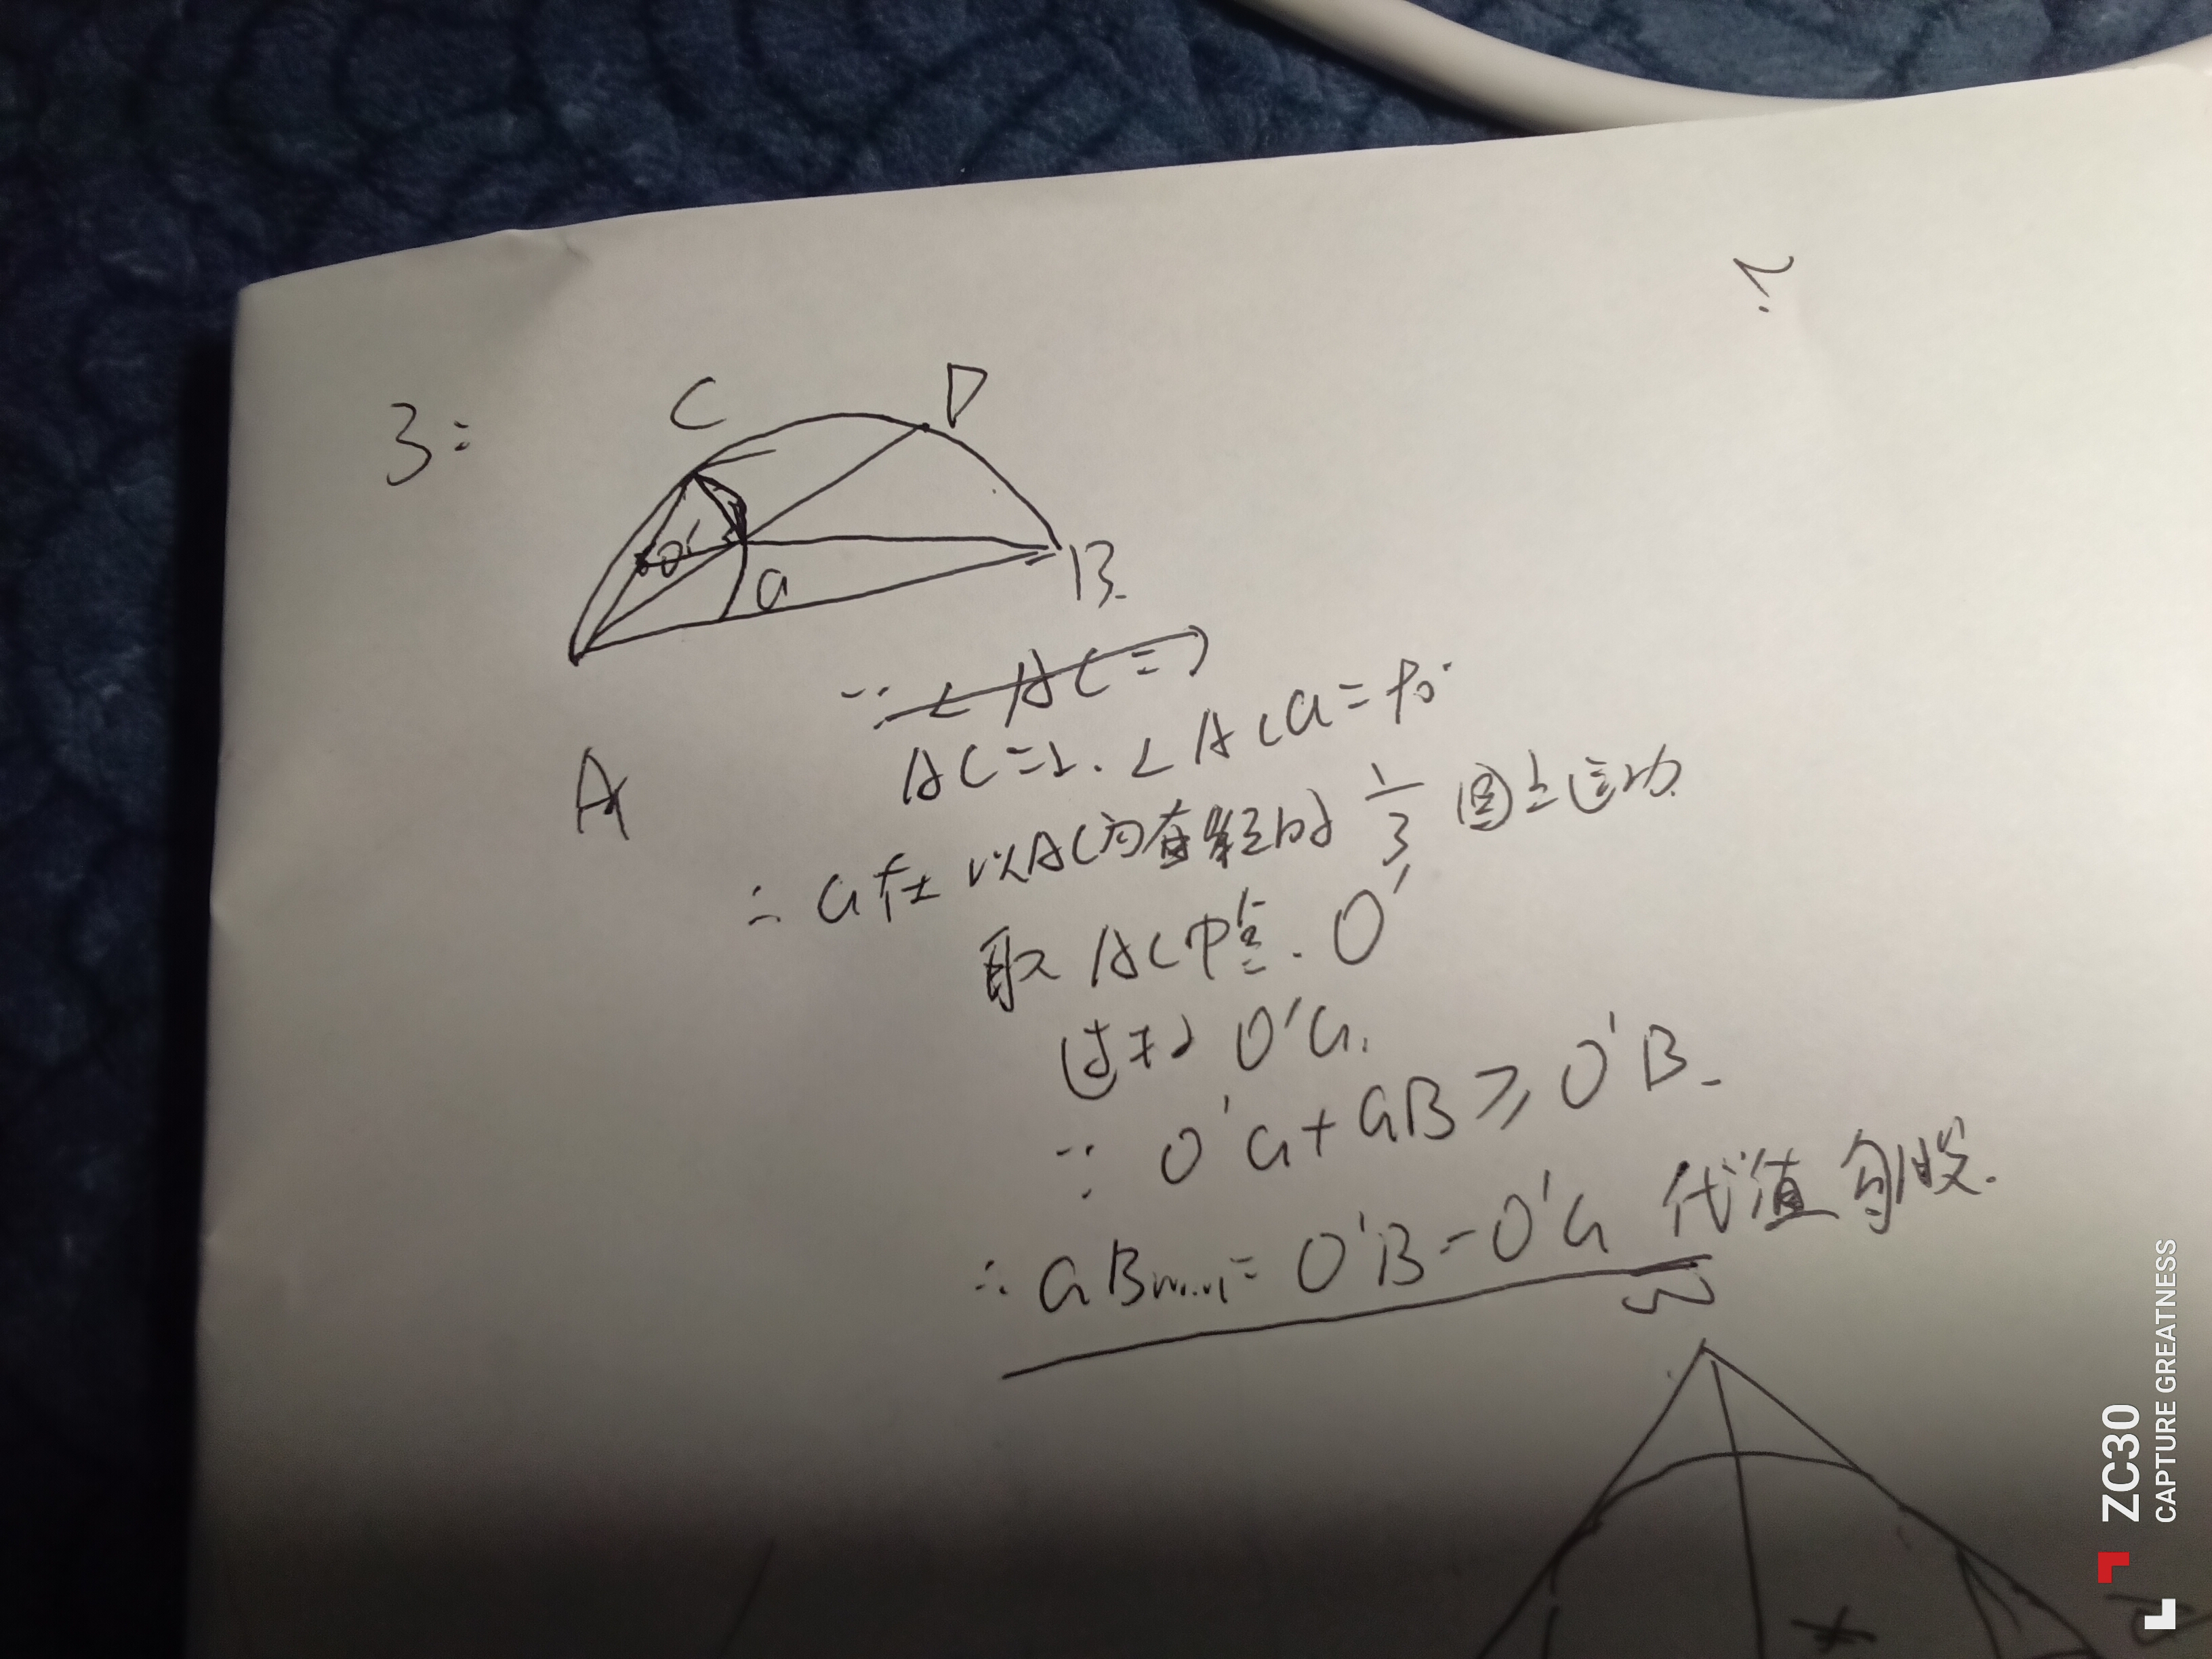 3:
C
D
O'
G
B
A
∵ ∠AC=
AC=2. ∠ACG=90°
∴ G在以AC为直径的 1/3 圆上运动
取AC中点. O'
连接 O'G.
∵ O'G+GB≥O'B.
∴ GBmin=O'B-O'G 代值勾股.
ZC30
CAPTURE GREATNESS